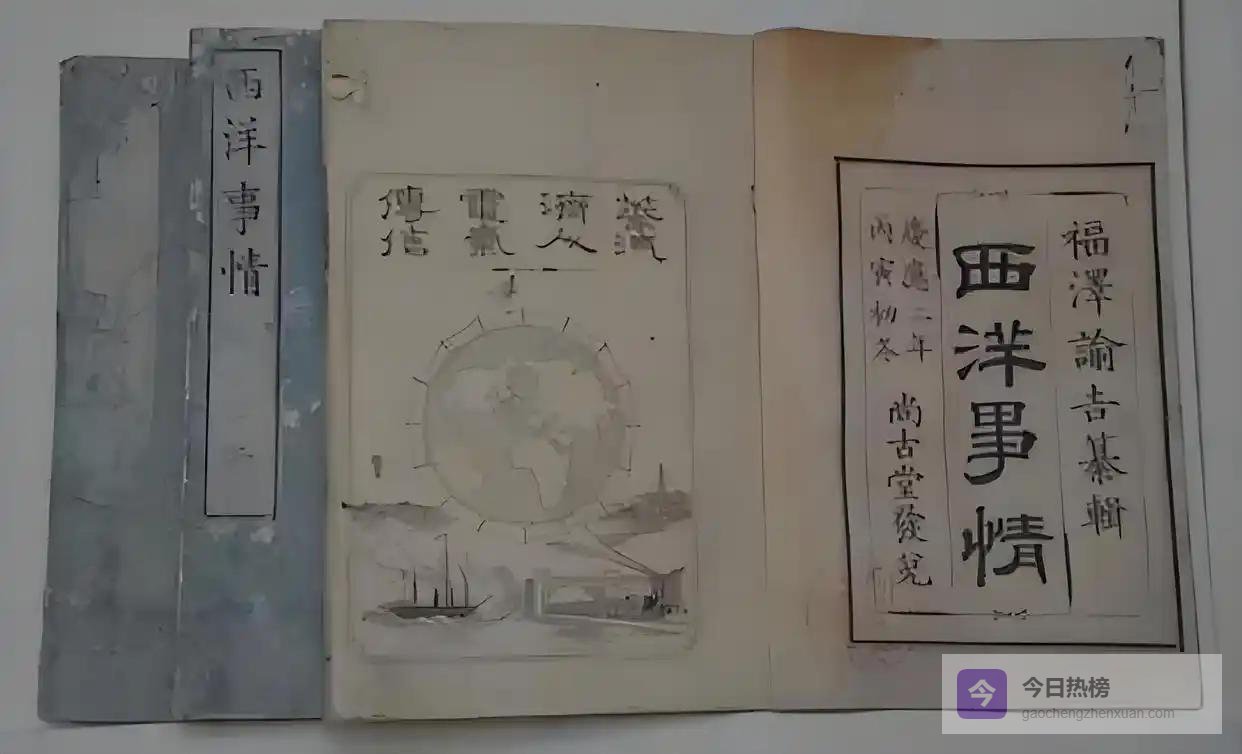 西洋事情
蒸汽 濟人 電氣 傳信
福澤諭吉纂輯
西洋事情
慶應二年
丙寅初冬
尚古堂發兌
今
今日热榜
gaochengzhenxuan.com